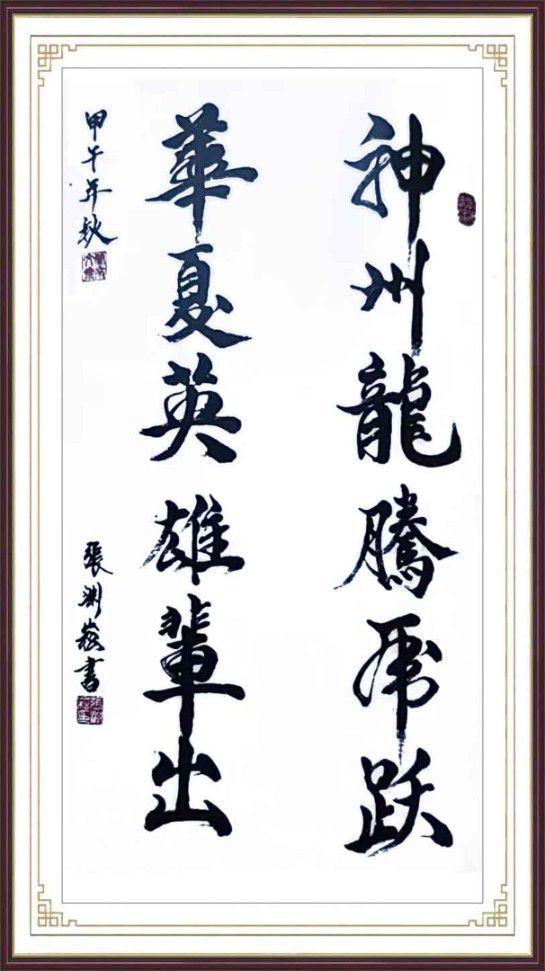 神州龍騰虎跃
華夏英雄輩出
甲午年秋
張渊崧书